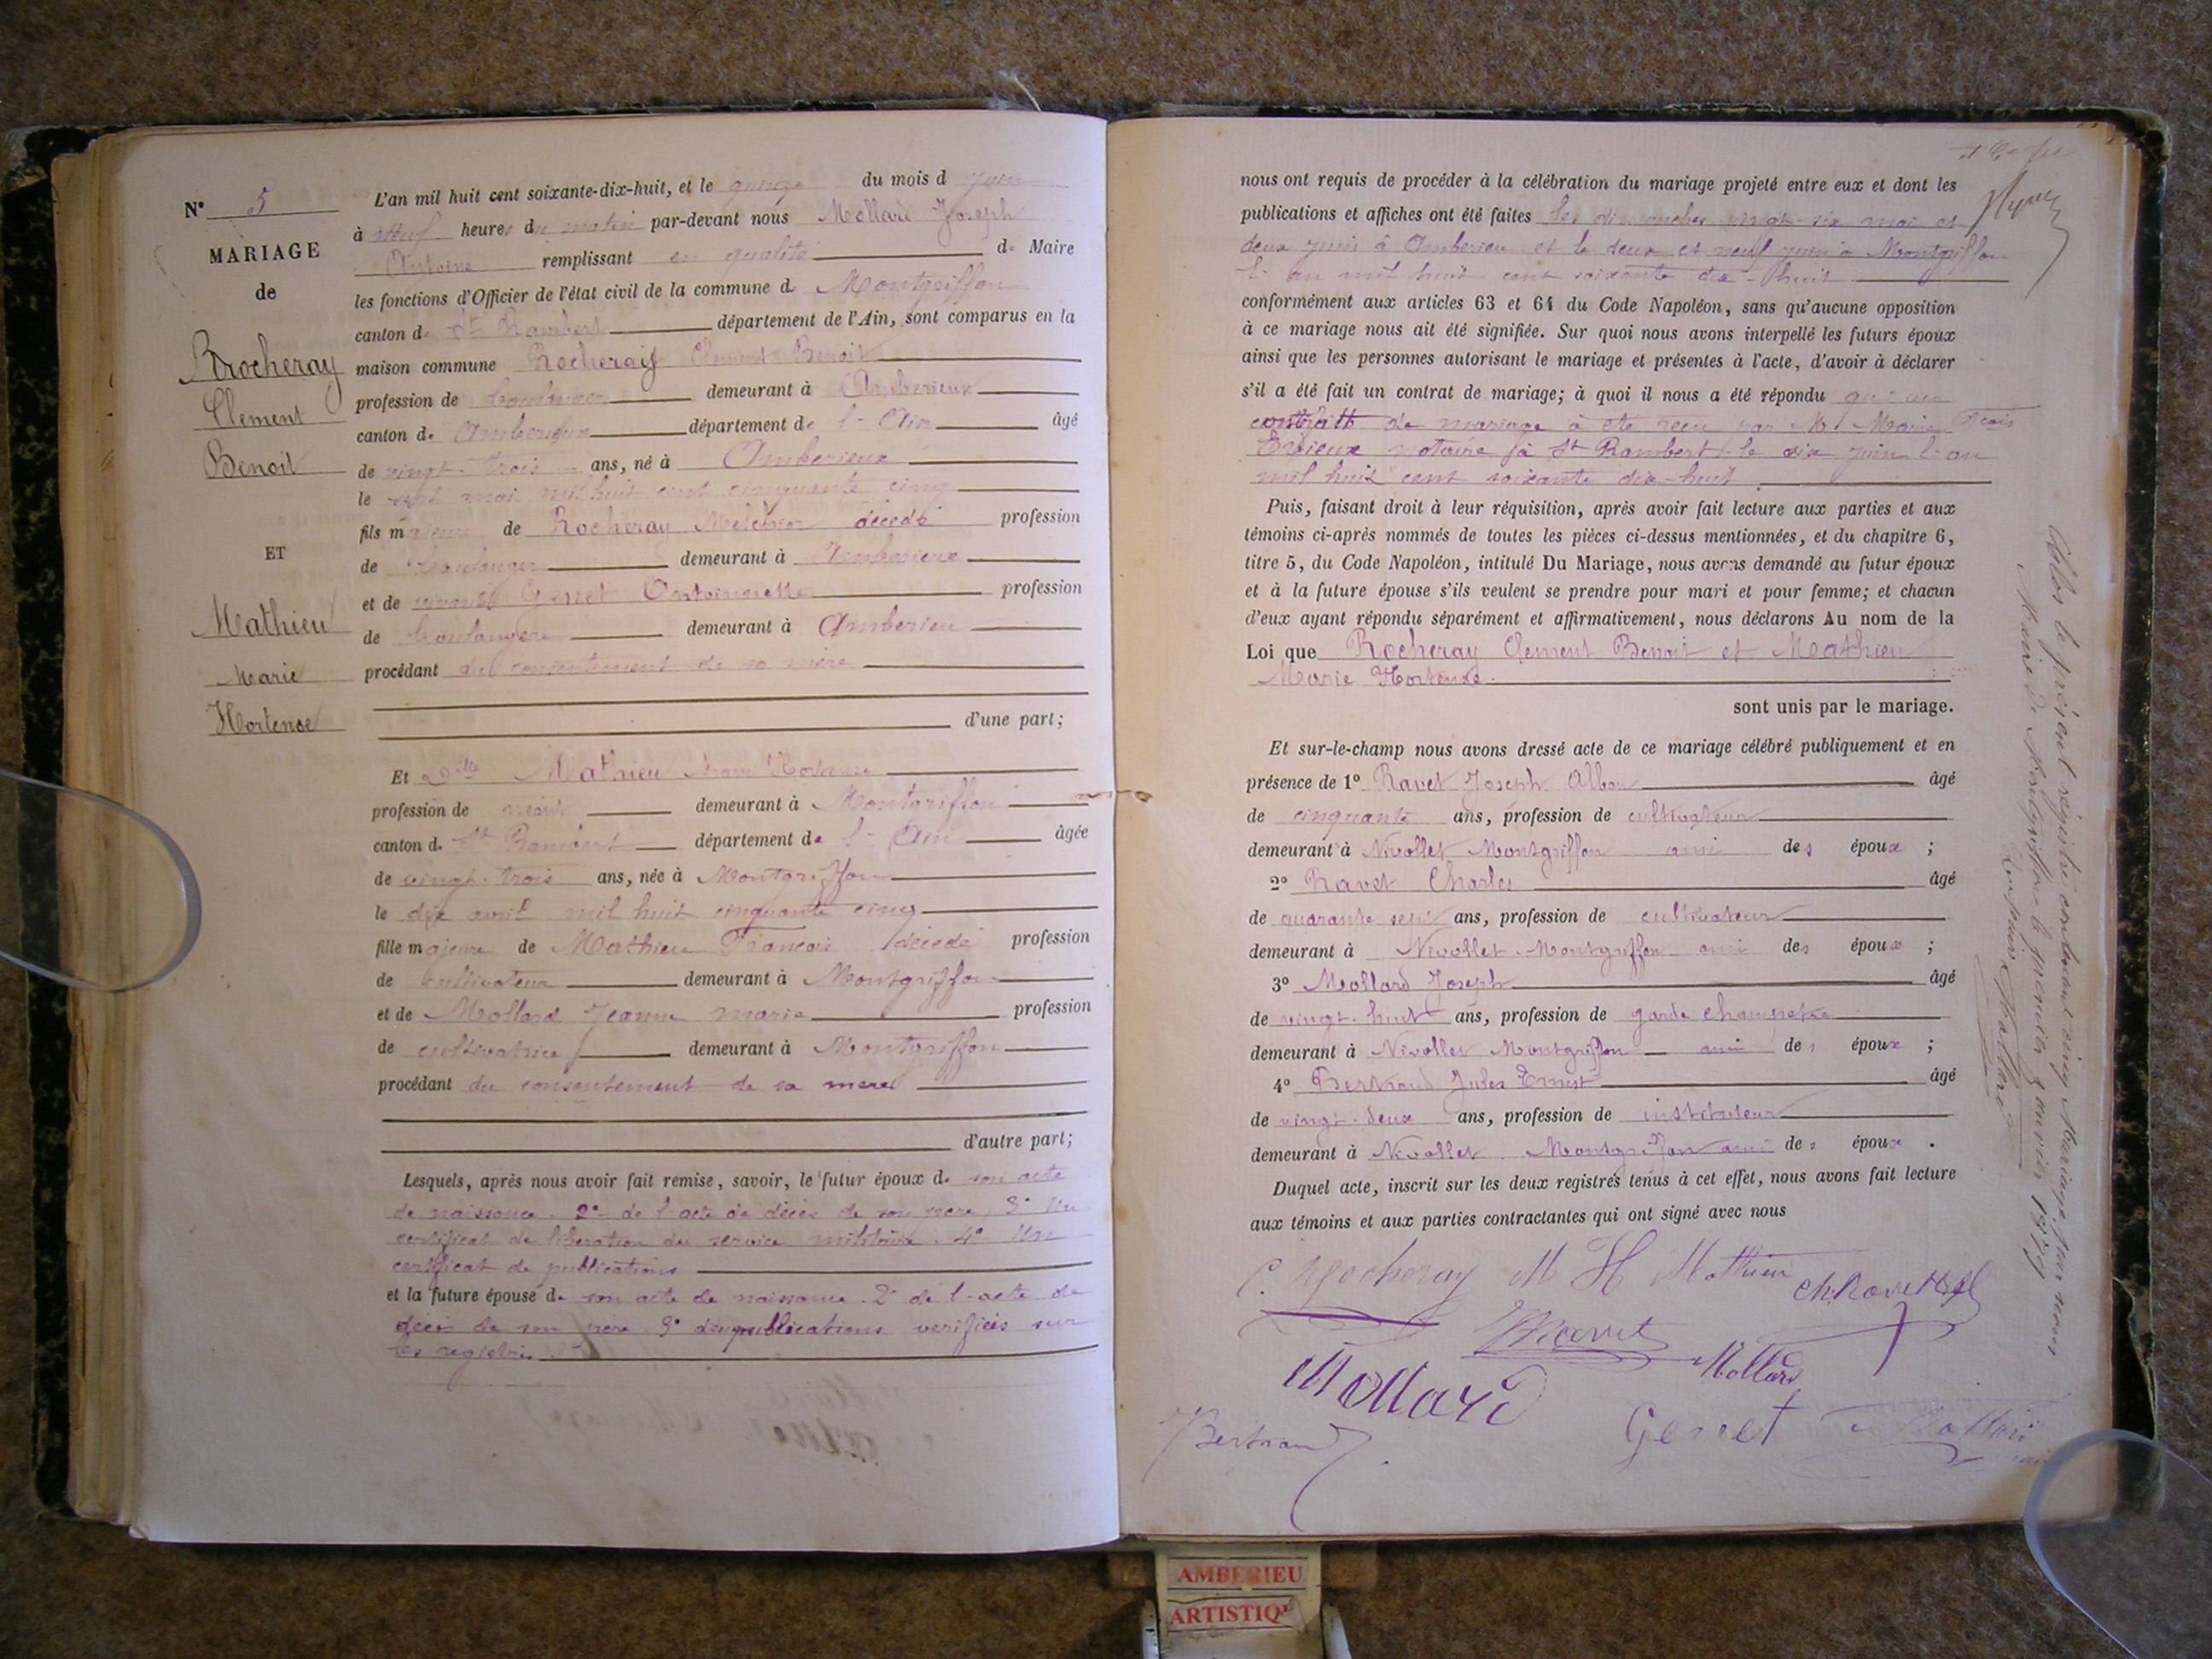 N° 5
MARIAGE
de
Rrocheray
Clement
Benoit
ET
Mathieu
Marie
Hortense
L'an mil huit cent soixante-dix-huit, et le quinze du mois d juin
à neuf heures du matin par-devant nous Mollard Joseph
Antoine remplissant en qualité de Maire
les fonctions d'Officier de l'état civil de la commune d Montgriffon
canton de St Rambert département de l'Ain, sont comparus en la
maison commune Rocheray Clement Benoit
profession de boulanger demeurant à Amberieux
canton de Amberieux département de l'Ain âgé
de vingt-trois ans, né à Amberieux
le sept mai mil huit cent cinquante cinq
fils majeur de Rocheray Melchior décedé profession
de boulanger demeurant à Amberieux
et de Genet Antoinette profession
de boulangère demeurant à Amberieu
procédant du consentement de sa mère
d'une part;
Et Dlle Mathieu Marie Hortense
profession de néant demeurant à Montgriffon
canton de St Rambert département de l'Ain âgée
de vingt-trois ans, née à Montgriffon
le dix avril mil huit cinquante cinq
fille majeure de Mathieu Francois décedé profession
de cultivateur demeurant à Montgriffon
et de Mollard Jeanne marie profession
de cultivatrice demeurant à Montgriffon
procédant du consentement de sa mere
d'autre part;
Lesquels, après nous avoir fait remise, savoir, le futur époux de son acte
de naissance. 2° de l'acte de décès de son pere, 3° Un
certificat de liberation du service militaire. 4° Un
certificat de publications
et la future épouse de son acte de naissance. 2° de l'acte de
decès de son pere. 3° des publications verifiées sur
les registres.
nous ont requis de procéder à la célébration du mariage projeté entre eux et dont les
publications et affiches ont été faites les dimanches vingt-six mai et
deux juin à Amberieu et le deux et neuf juin à Montgriffon
l'an mil huit cent soixante dix-huit
conformément aux articles 63 et 64 du Code Napoléon, sans qu'aucune opposition
à ce mariage nous ait été signifiée. Sur quoi nous avons interpellé les futurs époux
ainsi que les personnes autorisant le mariage et présentes à l'acte, d'avoir à déclarer
s'il a été fait un contrat de mariage; à quoi il nous a été répondu qu'un
contrat de mariage à eté recu par Me
notaire à St Rambert le six juin l'an
mil huit cent soixante dix-huit
Puis, faisant droit à leur réquisition, après avoir fait lecture aux parties et aux
témoins ci-après nommés de toutes les pièces ci-dessus mentionnées, et du chapitre 6,
titre 5, du Code Napoléon, intitulé Du Mariage, nous avons demandé au futur époux
et à la future épouse s'ils veulent se prendre pour mari et pour femme; et chacun
d'eux ayant répondu séparément et affirmativement, nous déclarons Au nom de la
Loi que Rocheray Clement Benoit et Mathieu
Marie Hortense.
sont unis par le mariage.
Et sur-le-champ nous avons dressé acte de ce mariage célébré publiquement et en
présence de 1° Ravet Joseph Albon âgé
de cinquante ans, profession de cultivateur
demeurant à Nivollet Montgriffon ami des époux ;
2° Ravet Charles âgé
de quarante sept ans, profession de cultivateur
demeurant à Nivollet-Montgriffon ami des époux ;
3° Mollard Joseph âgé
de vingt-huit ans, profession de garde champetre
demeurant à Nivollet Montgriffon ami des époux ;
4° Bertrand Jules Ernest âgé
de vingt-deux ans, profession de instituteur
demeurant à Nivollet Montgriffon ami des époux .
Duquel acte, inscrit sur les deux registres tenus à cet effet, nous avons fait lecture
aux témoins et aux parties contractantes qui ont signé avec nous
C. Rocheray M H Mathieu Ch. Ravet
Ravet
Mollard
Mollard
Bertrand
Genet
Clos le présent régistre contenant cinq Mariages par nous
Maire de Montgriffon le premier Janvier 1879
AMBERIEU
ARTISTIQU